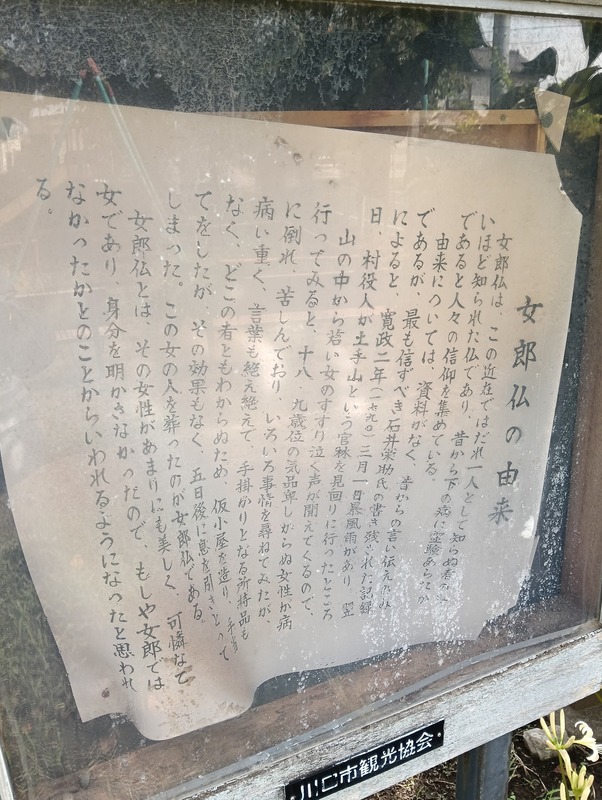 女郎仏の由来
女郎仏は、この近在ではだれ一人として知らぬ者がな
いほど知られた仏であり、昔から下の病に霊験あらたか
であると人々の信仰を集めている。
由来については、資料がなく、昔からの言い伝えのみ
であるが、最も信ずべき石井栄助氏の書き残された記録
によると、寛政二年(一七九〇)三月一日暴風雨があり、翌
日、村役人が土手山という官林を見回りに行ったところ
山の中から若い女のすすり泣く声が聞えてくるので、
行ってみると、十八、九歳位の気品卑しからぬ女性が病
に倒れ、苦しんでおり、いろいろ事情を尋ねてみたが、
病い重く、言葉も絶え絶えで、手掛かりとなる所持品も
なく、どこの者ともわからぬため、仮小屋を造り、手当
てをしたが、その効果もなく、五日後に息を引きとって
しまった。この女の人を葬ったのが女郎仏である。
女郎仏とは、その女性があまりにも美しく、可憐な
女であり、身分を明かさなかったので、もしや女郎では
なかったかとのことからいわれるようになったと思われ
る。
川口市観光協会